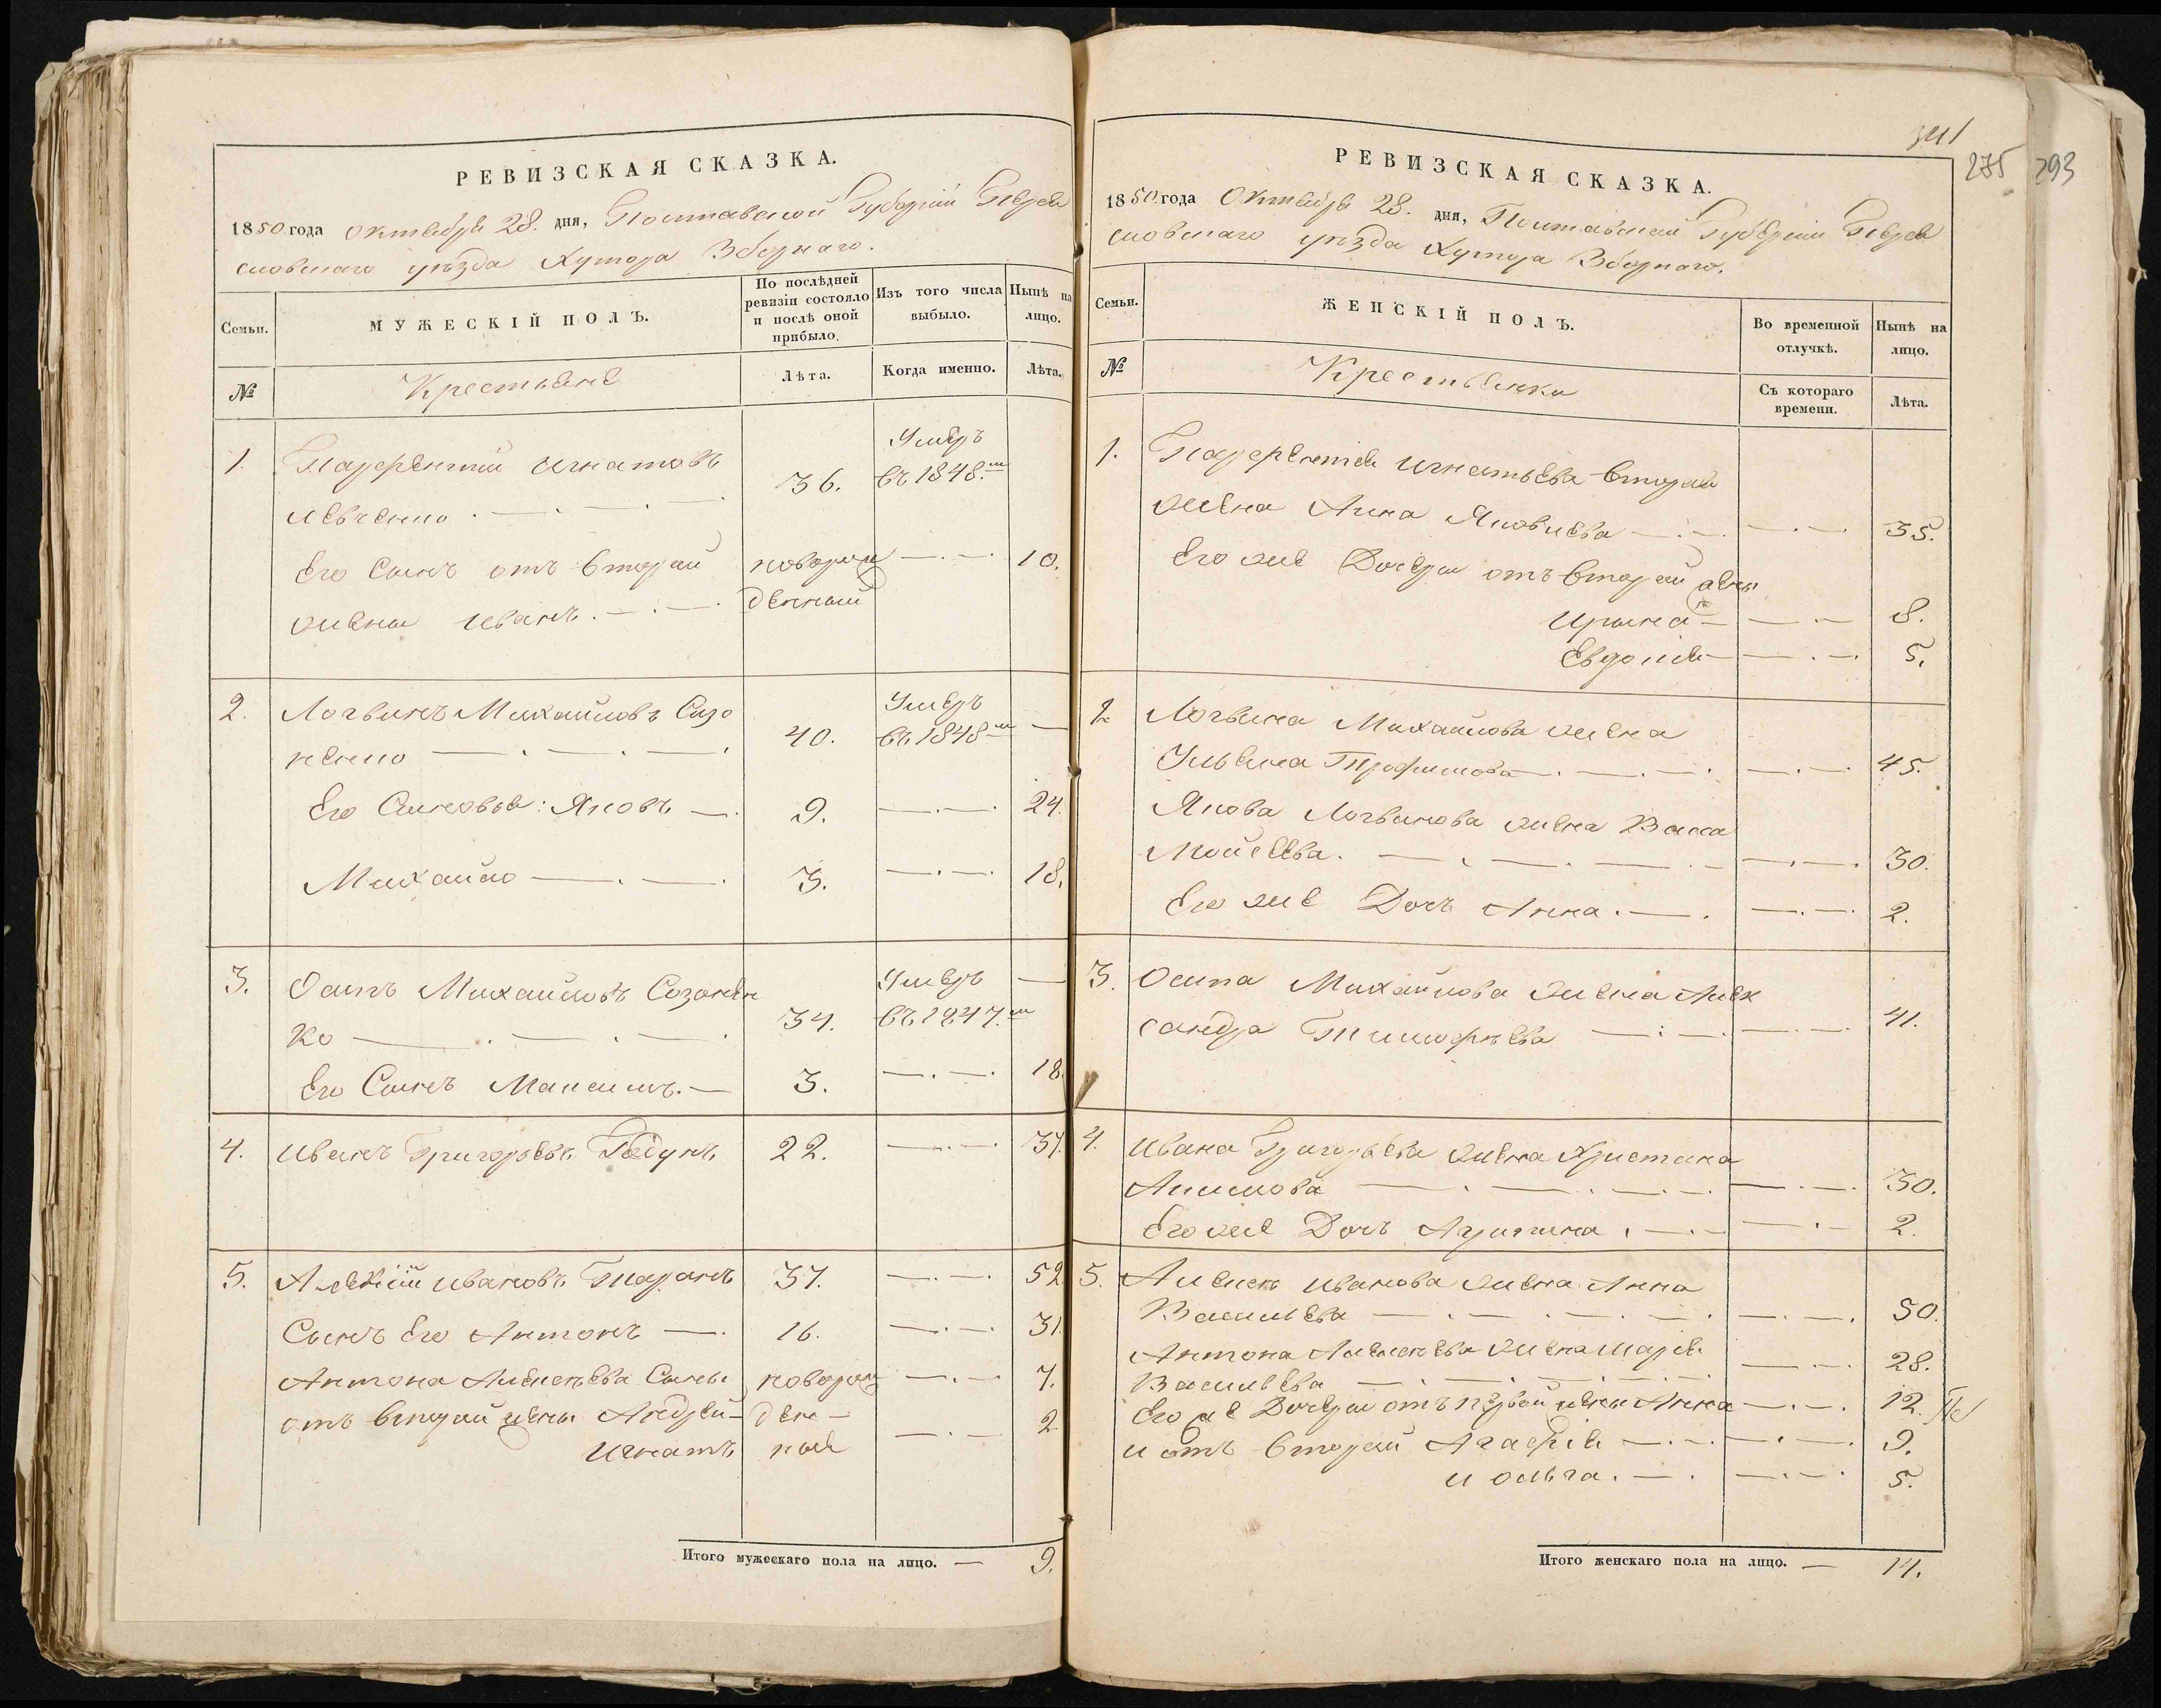 РЕВИЗСКАЯ СКАЗКА.
1850 года Октября 28. дня, Полтавской Губерніи Перея
словскаго уѣзда Хутора Зборнаго.
Семьи.
МУЖЕСКІЙ ПОЛЪ.
По послѣдней ревизіи состояло и послѣ оной прибыло.
Изъ того числа выбыло.
Нынѣ на лицо.
№
Крестьяне
Лѣта.
Когда именно.
Лѣта.
1. Парфентій Игнатовъ 36. Умеръ въ 1848.м
Левченко
Его Сынъ отъ второй новорож 10.
жены Иванъ. денный
2. Логвинъ Михайловъ Сазо 40. Умеръ въ 1848м —
ненко
Его Сыновья: Яковъ — 9. 24.
Михайло 3. 18.
3. Осипъ Михайловъ Созонен 34. Умеръ въ 1847.м —
ко
Его Сынъ Максимъ. — 3. 18.
4. Иванъ Григорьевъ 22. 37.
5. Алексій Ивановъ Таранъ 37. 52.
Сынъ Его Антонъ — 16. 31.
Антона Алексѣева Сыны новорож 7.
отъ второй жены Андрей — ден- 2
Игнатъ ные
Итого мужескаго пола на лицо. — 9.
341
275 293
РЕВИЗСКАЯ СКАЗКА.
1850 года Октября 28. дня, Полтавской Губерніи Перея
словскаго уѣзда Хутора Зборнаго.
Семьи.
ЖЕНСКІЙ ПОЛЪ.
Во временной отлучкѣ.
Нынѣ на лицо.
№
Крестьянки
Съ котораго времени.
Лѣта.
1. Парфентія Игнатьева вторая
жена Анна Яковлева 35.
Его же Дочери отъ второй жены
Ирина 8.
Евдокія 5.
2 Логвина Михайлова жена
Ульяна Трофимова 45.
Якова Логвинова жена Васса
Мойсеева. 30.
Его же Дочь Анна. 2.
3. Осипа Михайлова жена Алек
сандра Тимофѣева 41.
4. Ивана Григорьева жена Христина
Акимова 30.
Его же Дочь Агрипина. 2.
5. Алексѣя Иванова жена Анна
Васильева 50.
Антона Алексѣева жена Марія
Васильева 28.
Его же Дочери отъ первой жены Анна 12.
и отъ второй Агафія 9.
и Ольга. 5.
Итого женскаго пола на лицо. — 14.